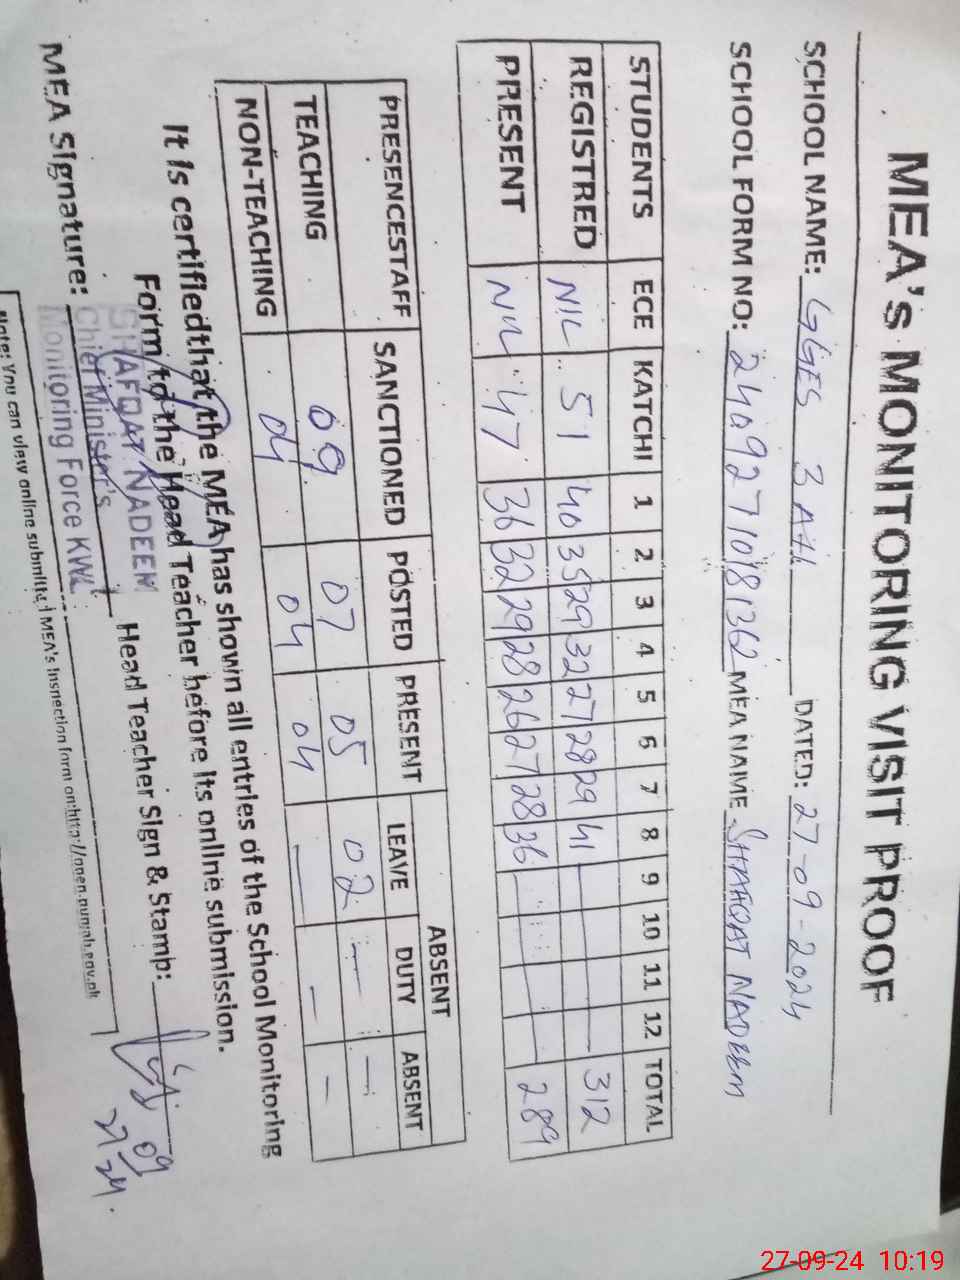 MEA's MONITORING VISIT PROOF
SCHOOL NAME: GGES 3 AH DATED: 27-09-2024
SCHOOL FORM NO: MEA NAME SHAFQAT NADEEM
STUDENTS ECE KATCHI 1 2 3 4 5 6 7 8 9 10 11 12 TOTAL
REGISTRED NIL 51 40 35 29 32 27 28 29 41 312
PRESENT NIL 47 36 32 29 28 26 27 28 36 289
PRESENCESTAFF SANCTIONED POSTED PRESENT ABSENT
LEAVE DUTY ABSENT
TEACHING 09 07 05 02 — —
NON-TEACHING 04 04 04 — — —
It is certifiedthat the MEA has shown all entries of the School Monitoring
Form to the Head Teacher before its online submission.
SHAFQAT NADEEM
Chief Minister's
Monitoring Force KWL
MEA Signature: Head Teacher Sign & Stamp:
27 09 24
Note: You can view online submitted MEA's Inspection form on:http://open.punjab.gov.pk
27-09-24 10:19